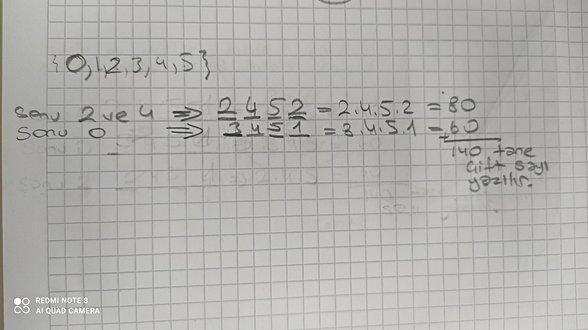 {0,1,2,3,4,5}
sonu 2 ve 4 ⇒ 2 4 5 2 = 2.4.5.2 = 80
sonu 0 ⇒ 3 4 5 1 = 3.4.5.1 = 60
140 tane
çift sayı
yazılır.
REDMI NOTE 8
AI QUAD CAMERA